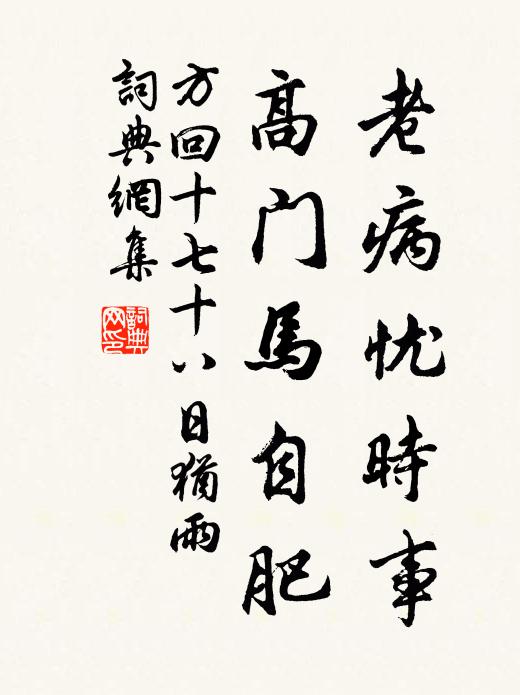 老病忧時事
高门馬自肥
方回十七十八日猶雨
詞典網集
詞典
网印